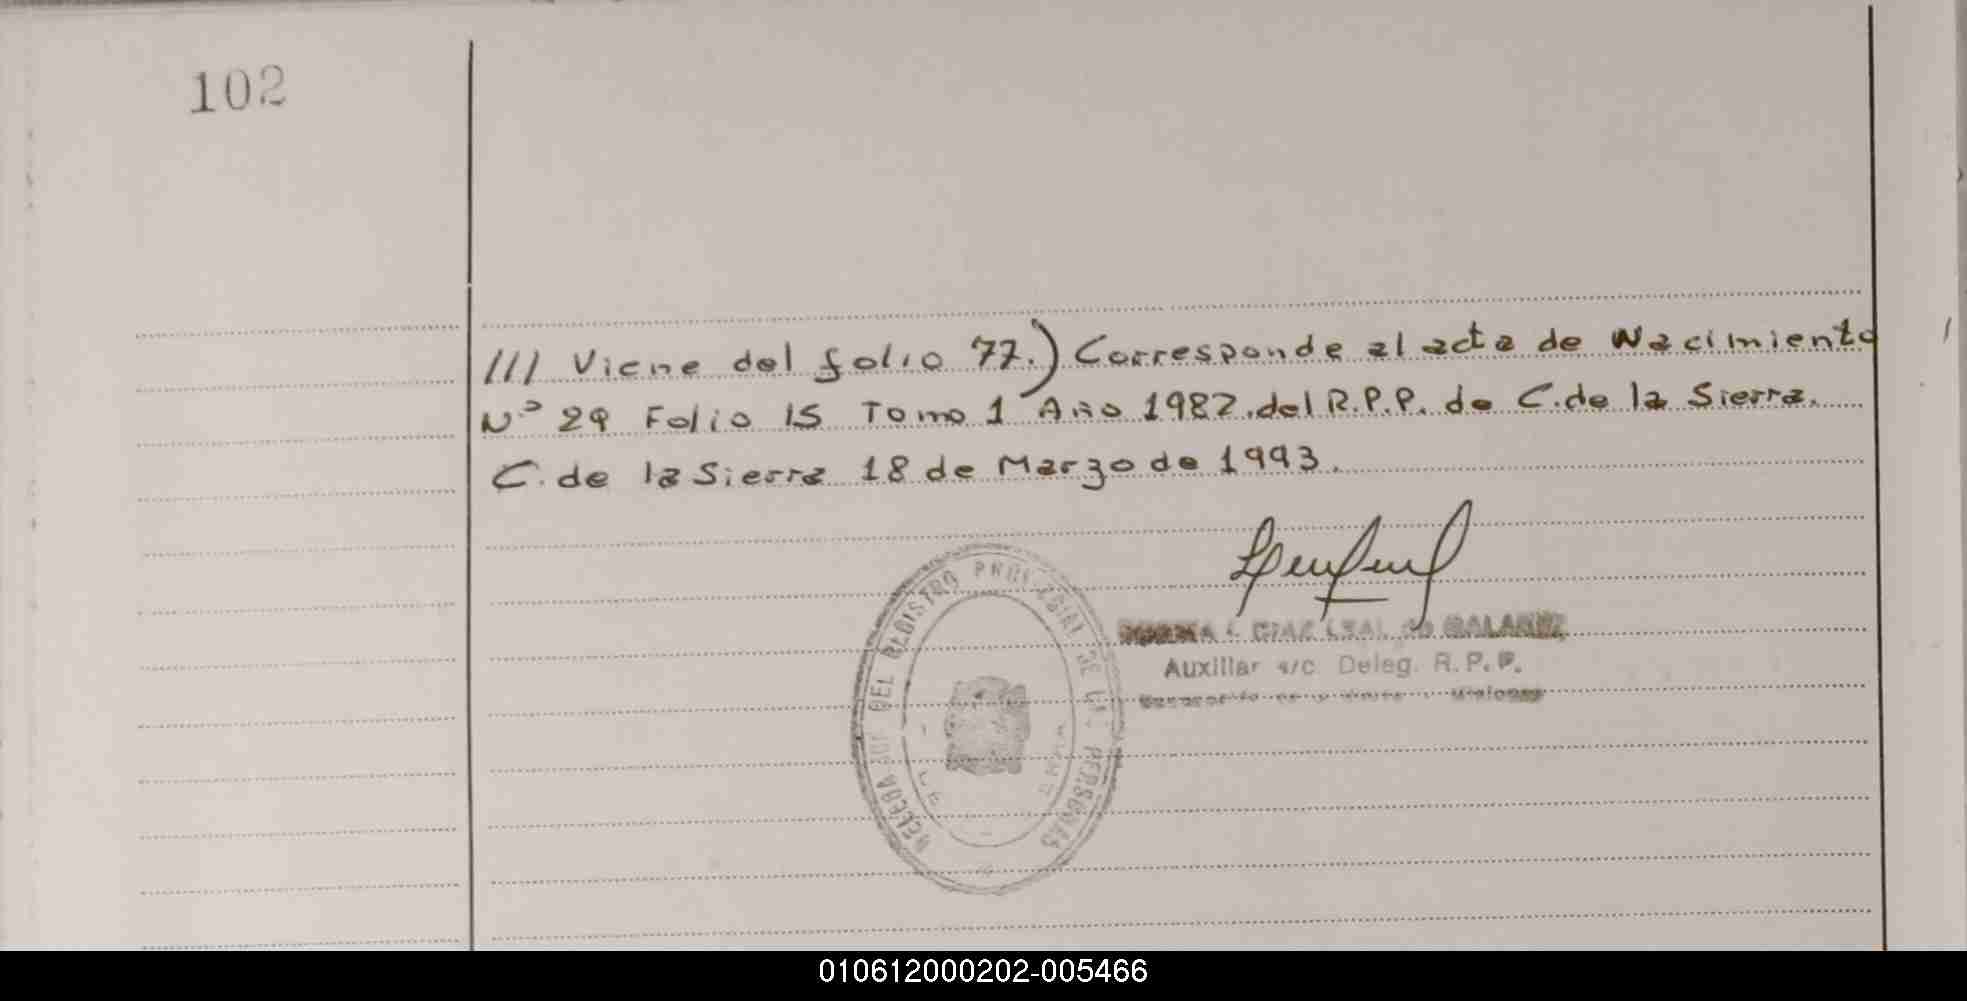 102
/// Viene del folio 77.) Corresponde al acta de Nacimiento
Nº 29 Folio 15 Tomo 1 Año 1982.del R.P.P. de C.de la Sierra.
C. de la Sierra 18 de Marzo de 1993.
DEL REGISTRO PROVINCIAL DE LAS PERSONAS
Auxiliar a/c Deleg. R.P.P.
Misiones
010612000202-005466